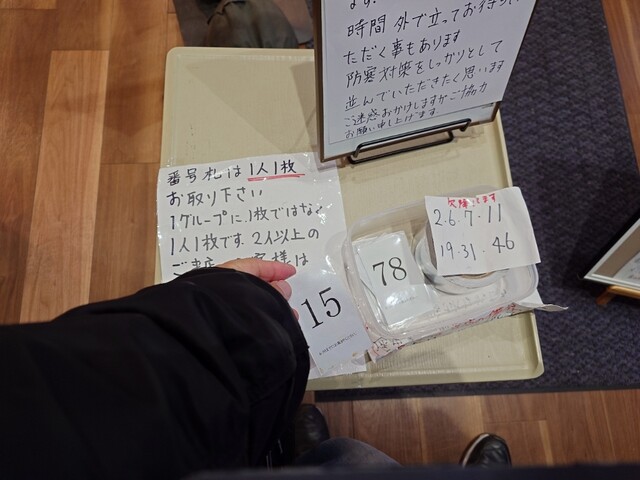 ます.
時間 外で立ってお待ちい
ただく事もあります
防寒対策をしっかりとして
並んでいただきたく思います
ご迷惑おかけしますがご協力
お願い申し上げます.
番号札は1人1枚
お取り下さい
1グループに.1枚ではなく
1人1枚です. 2人以上の
客様は
15
78
欠陥してます
2.6.7.11
19.31.46